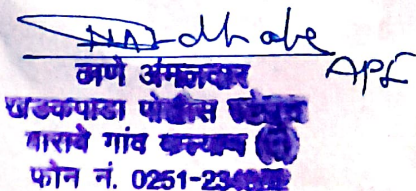 API
ठाणे अंमलदार
खडकपाडा पोलीस
बारावे गांव कल्याण (प)
फोन नं. 0251-234